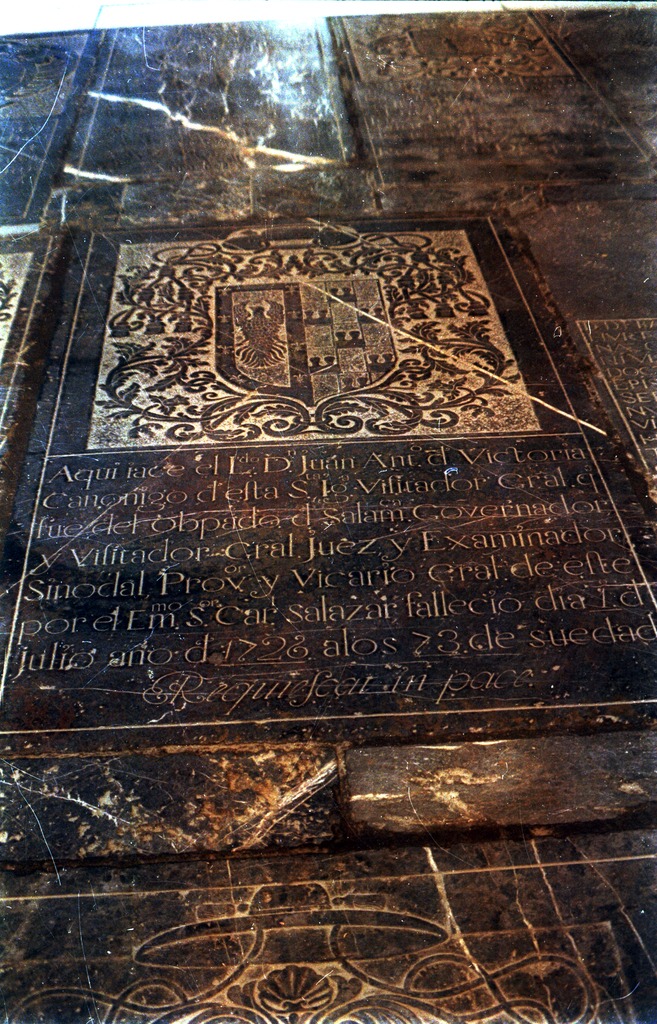 Aqui iace el L.do D.n Juan Ant.o d Victoria
Canonigo d'esta S.ta Ig.a Visitador Gral. q
fue del Obpado d Salam.ca Governador
y Visitador Gral Juez, y Examinador
Sinodal, Prov.or y Vicario Gral. de este
por el Em.mo S.or Car. Salazar, fallecio dia 1 d
Julio año d 1726 a los 73. de su edad
Requiescat in pace.